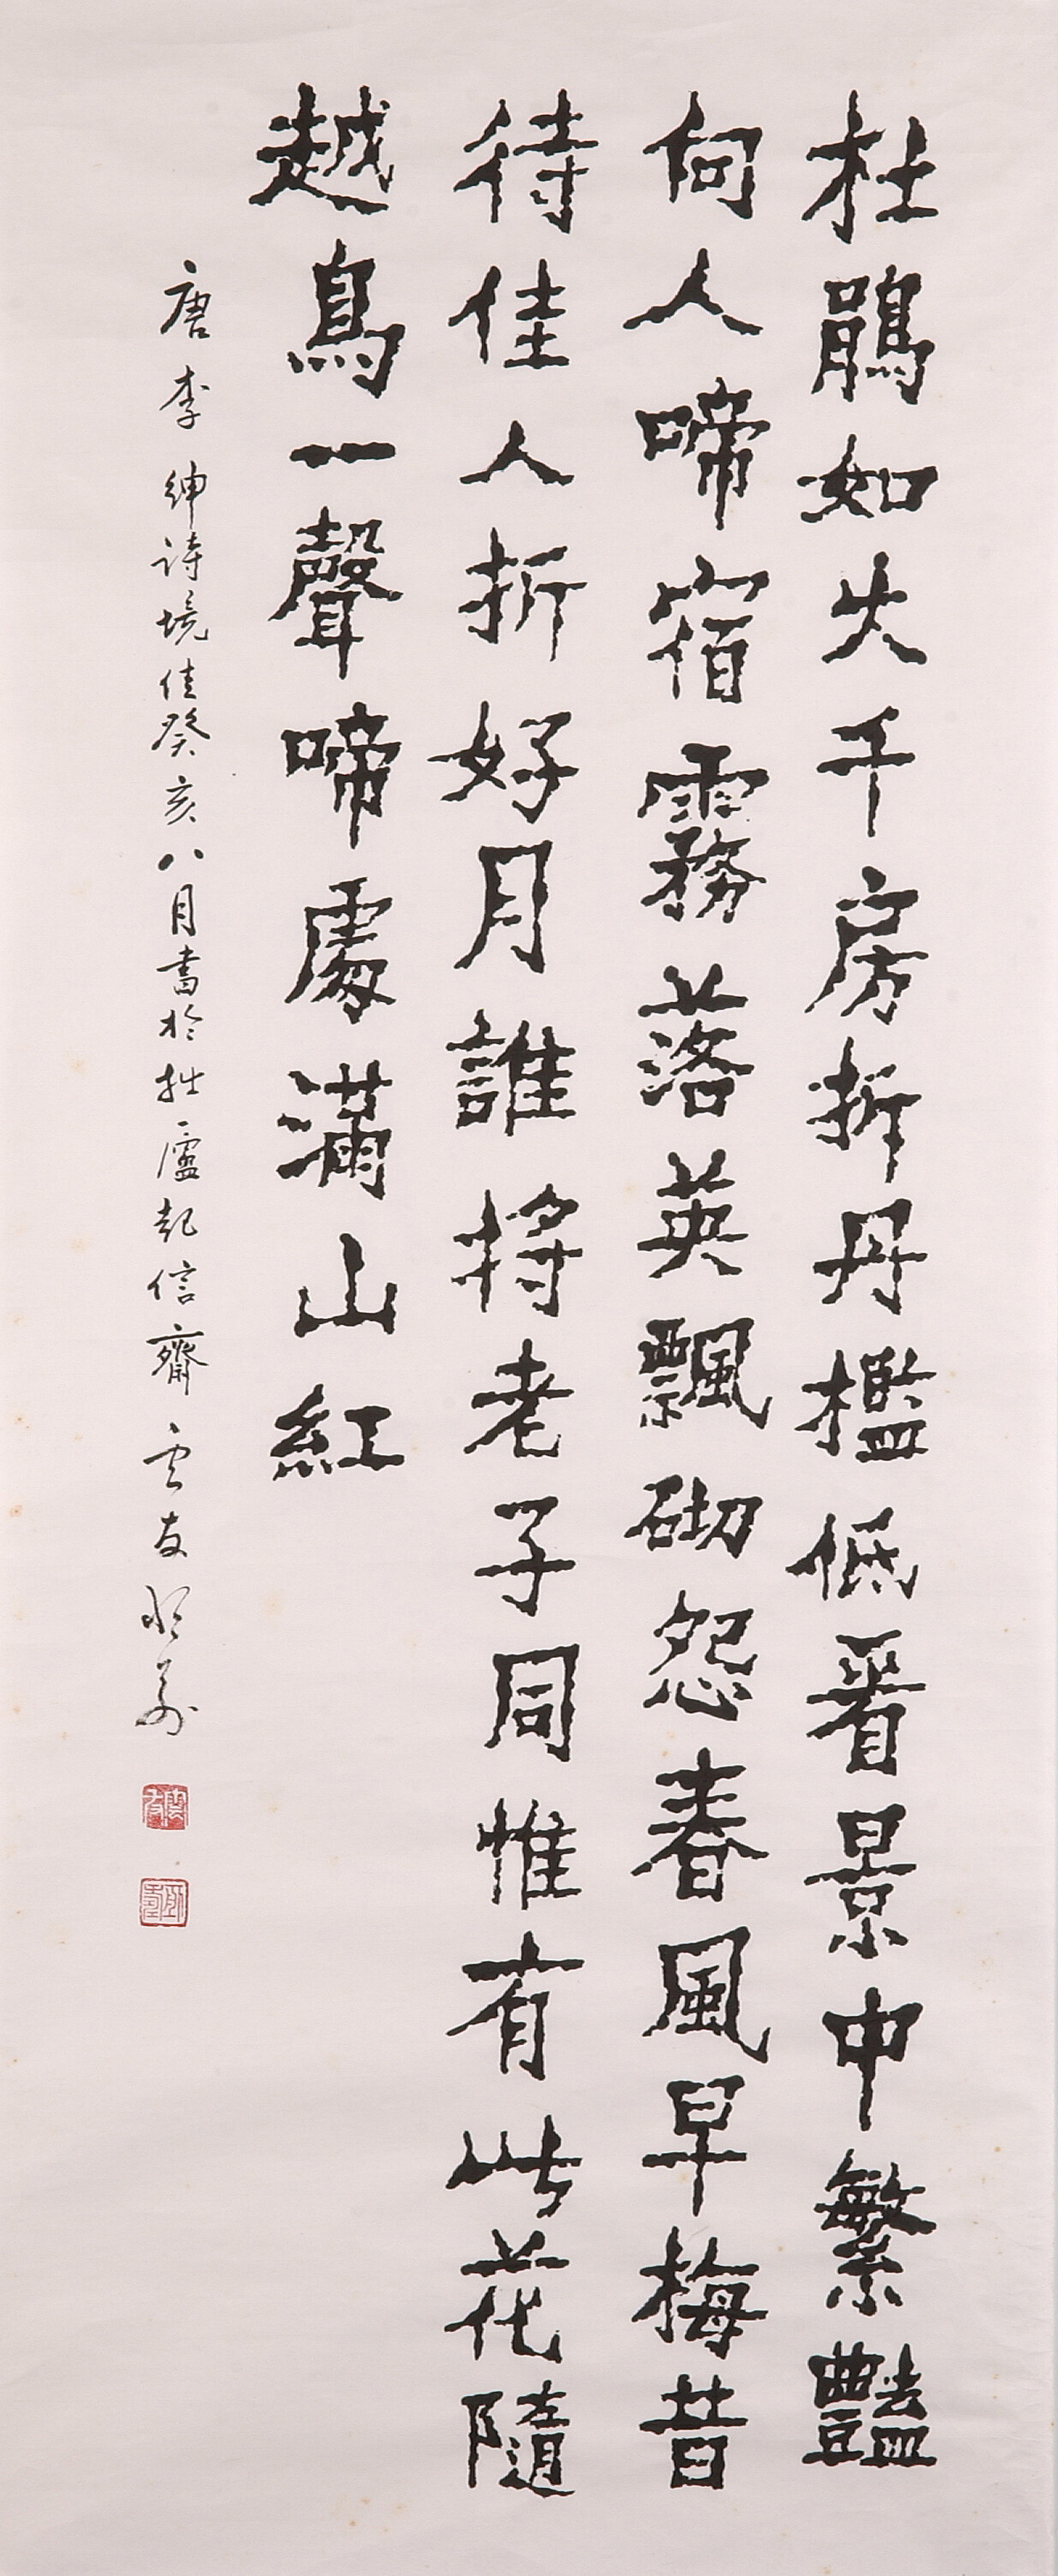 杜鵑如火千房拆丹檻低看景中繁豔
向人啼宿霧落英飄砌怨春風早梅昔
待佳人折好月誰將老子同惟有此花隨
越鳥一聲啼處滿山紅
唐李紳詩境佳癸亥八月書於拙廬起信齋雲友